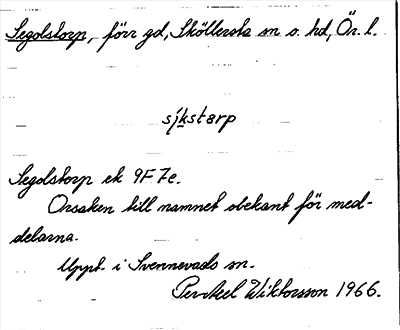 Segolstorp, förr gd, Sköllersta sn o. hd, Ör. l.
sjkstərp
Segolstorp ek 9F 7e.
Orsaken till namnet obekant för med-
delarna.
Uppt. i Svennevads sn.
Per-Axel Wiktorsson 1966.